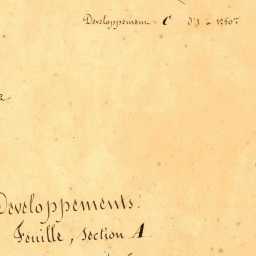 Developpement C d'3 - 1250e
Developpements.
Feuille, Section A